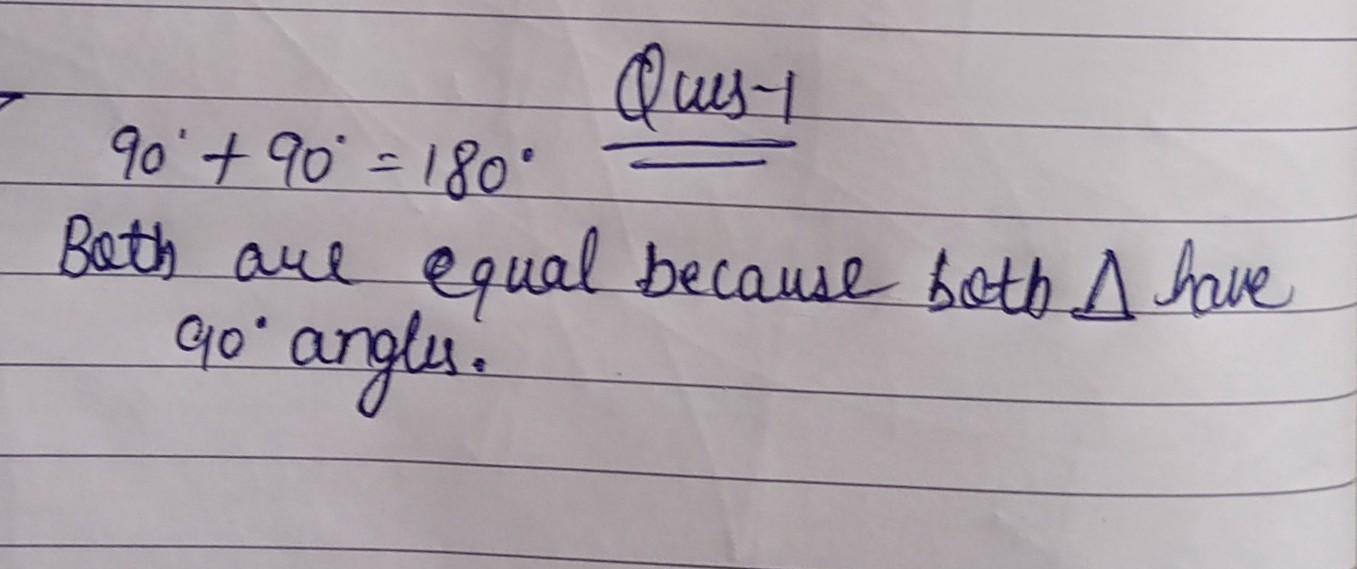 Ques-1
90° + 90° = 180°
Both are equal because both Δ have
90° angles.